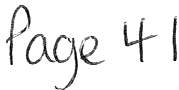 Page 41